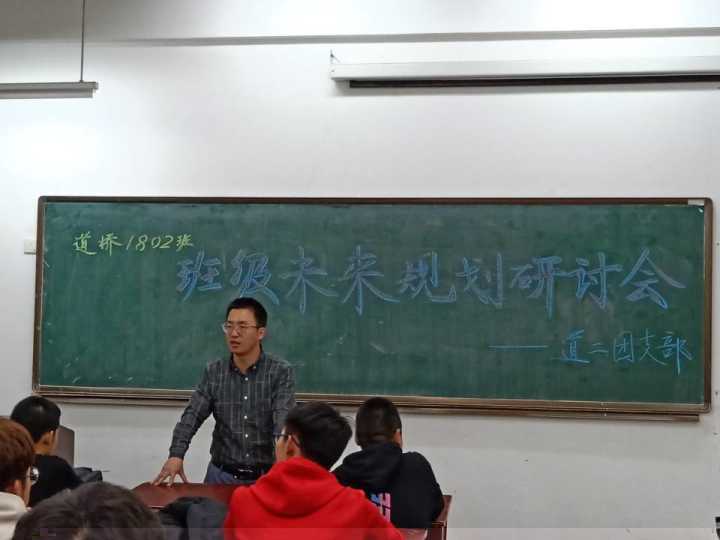 道桥1802班
班级未来规划研讨会
——道二团支部